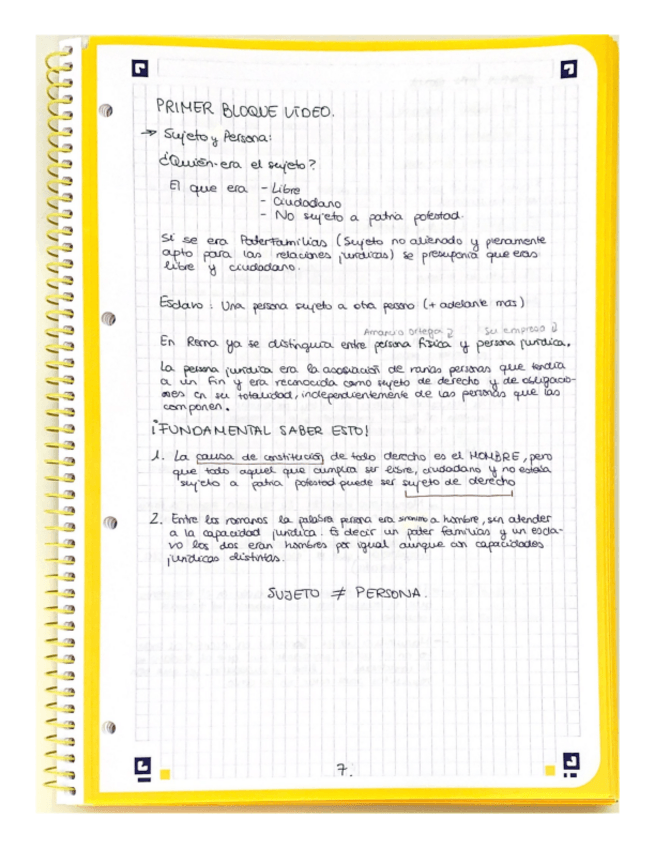 PRIMER BLOQUE VIDEO.
→ Sujeto y Persona:
¿Quién era el sujeto?
El que era - Libre
- Ciudadano
- No sujeto a patria potestad.
Si se era Paterfamilias (Sujeto no alienado y plenamente
apto para las relaciones jurídicas) se presuponía que eras
libre y ciudadano.
Esclavo : Una persona sujeto a otra persona (+ adelante más)
Amancio Ortega Su empresa
En Roma ya se distinguía entre persona física y persona jurídica.
La persona jurídica era la asociación de varias personas que tendía
a un fin y era reconocida como sujeto de derecho y de obligacio-
nes en su totalidad, independientemente de las personas que las
componen.
¡FUNDAMENTAL SABER ESTO!
1. La causa de constitución de todo derecho es el HOMBRE, pero
que todo aquel que cumplía ser libre, ciudadano y no estaba
sujeto a patria potestad puede ser sujeto de derecho
2. Entre los romanos la palabra persona era sinónimo a hombre, sin atender
a la capacidad jurídica. Es decir un pater familias y un escla-
vo los dos eran hombres por igual aunque con capacidades
jurídicas distintas.
SUJETO ≠ PERSONA.
7.